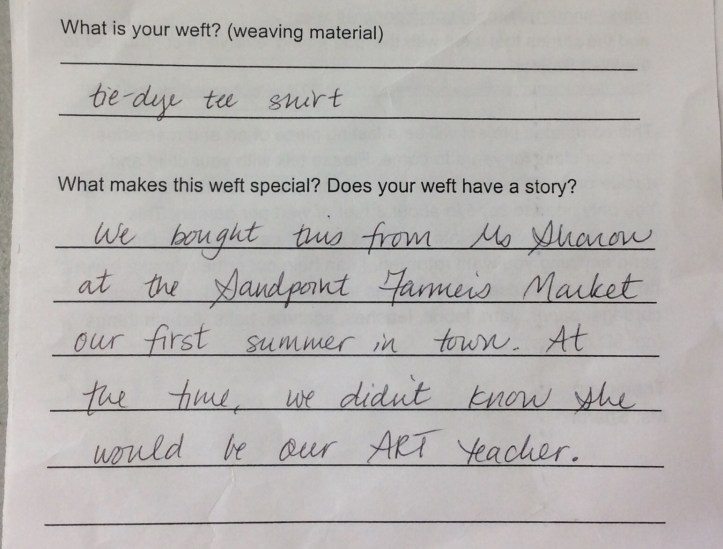 What is your weft? (weaving material)
tie-dye tee shirt
What makes this weft special? Does your weft have a story?
We bought this from Ms Sharon
at the Sandpoint Farmers Market
our first summer in town. At
the time, we didn't know she
would be our ART teacher.